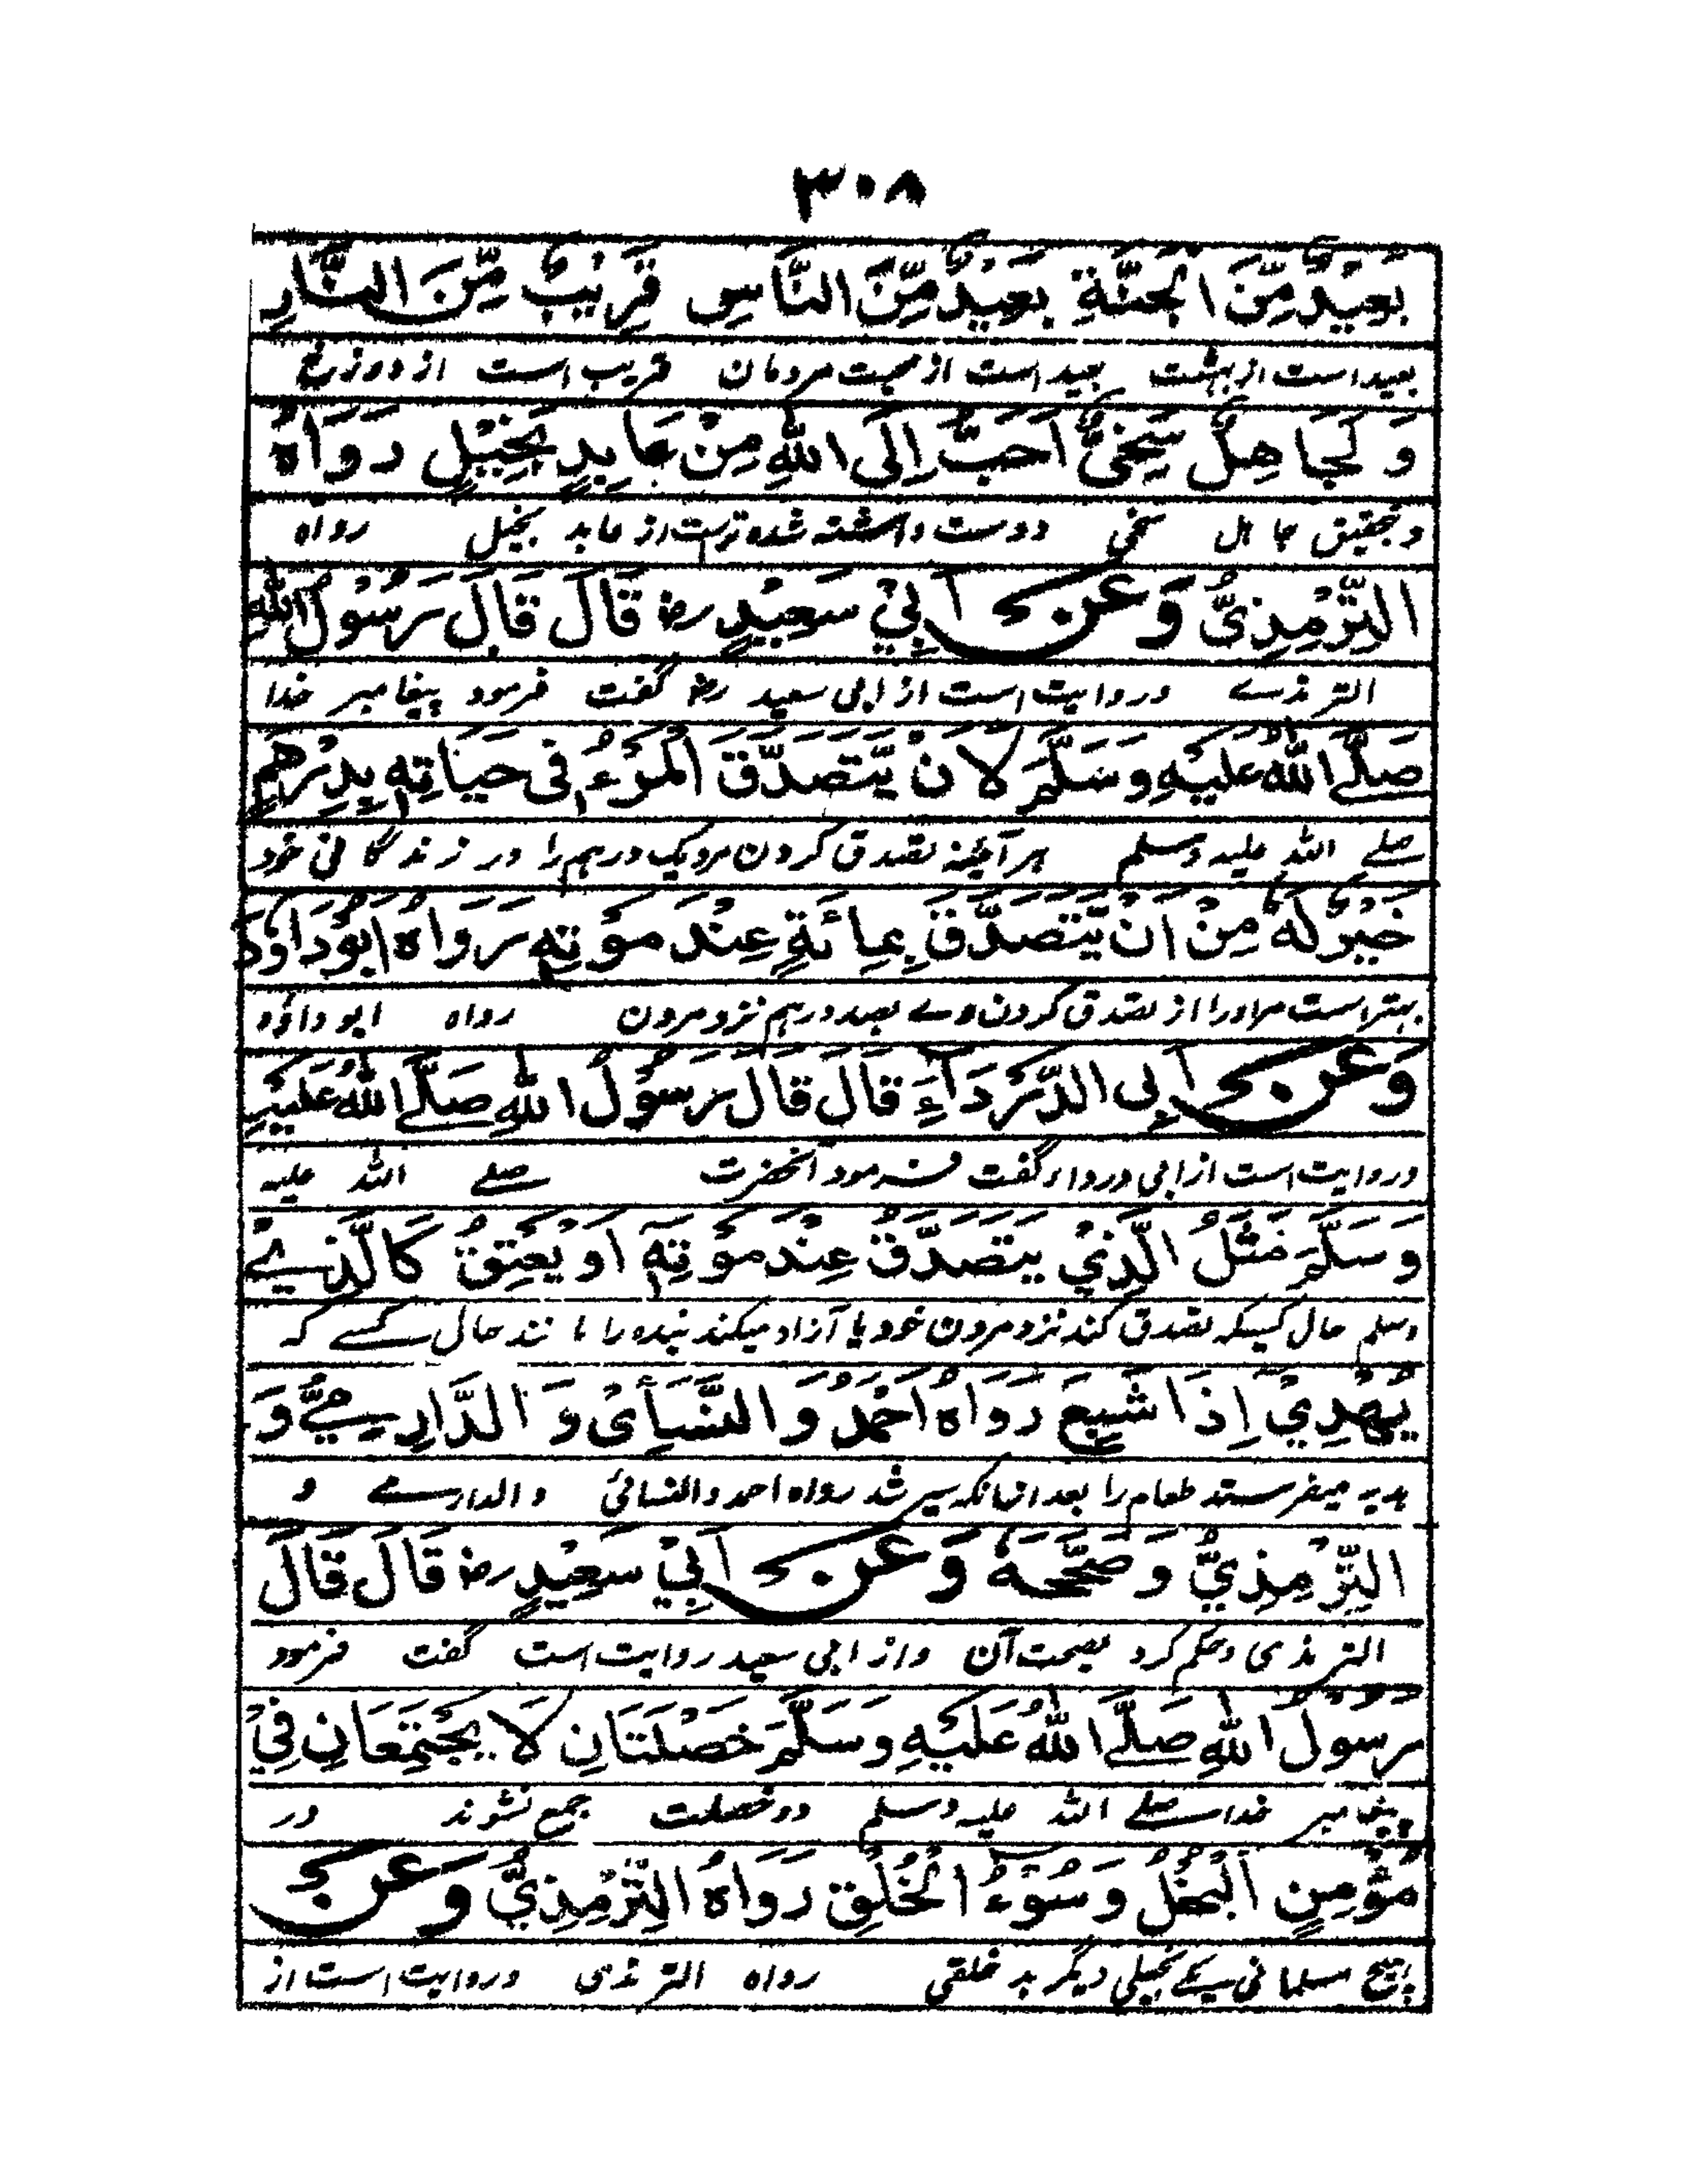 ٣٠٨
بَعِيْدٌ مِّنَ الْجَنَّةِ بَعِيْدٌ مِّنَ النَّاسِ قَرِيْبٌ مِّنَ النَّارِ
بعید است از بهشت بعید است از محبت مردمان قریب است از دوزخ
وَ لَجَاهِلٌ سَخِىٌّ اَحَبُّ اِلَى اللهِ مِنْ عَابِدٍ بَخِيْلٍ رَوَاهُ
و تحقیق جاهل سخی دوست داشته شده ترست از عابد بخیل رواه
التِّرْمِذِىُّ وَعَنْ اَبِيْ سَعِيْدٍ رض قَالَ قَالَ رَسُوْلُ اللهِ
الترمذے و روایت است از ابی سعید رض گفت فرمود پیغامبر خدا
صَلَّے اللهُ عَلَيْهِ وَسَلَّمَ لَاَنْ يَّتَصَدَّقَ الْمَرْءُ فِى حَيَاتِهٖ بِدِرْهَمٍ
صلے الله علیه وسلم هرآئینه تصدق کردن مرد یک درهم را در زندگانی خود
خَيْرٌ لَّهُ مِنْ اَنْ يَّتَصَدَّقَ بِمِائَةٍ عِنْدَ مَوْتِهٖ رَوَاهُ اَبُوْدَاوٗدَ
بهتر است مر اورا از تصدق کردن وے بصد درهم نزد مردن رواه ابو داؤد
وَعَنْ اَبِى الدَّرْدَاءِ قَالَ قَالَ رَسُوْلُ اللهِ صَلَّے اللهُ عَلَيْهِ
و روایت است از ابی درداء گفت فرمود آنحضرت صلے الله علیه
وَسَلَّمَ مَثَلُ الَّذِيْ يَتَصَدَّقُ عِنْدَ مَوْتِهٖ اَوْ يُعْتِقُ كَالَّذِيْ
وسلم حال کسیکه تصدق کند نزد مردن خود یا آزاد میکند بنده را مانند حال کسے که
يُهْدِيْ اِذَا شَبِعَ رَوَاهُ اَحْمَدُ وَ النَّسَائِىُ وَ الدَّارِمِيُّ وَ
هدیه میفرستد طعام را بعد ازانکه سیر شد رواه احمد والنسائی والدارمے و
التِّرْمِذِيُّ وَ صَحَّحَهُ وَعَنْ اَبِيْ سَعِيْدٍ رض قَالَ قَالَ
الترمذی و حکم کرد بصحت آن و از ابی سعید روایت است گفت فرمود
رَسُوْلُ اللهِ صَلَّے اللهُ عَلَيْهِ وَسَلَّمَ خَصْلَتَانِ لَا يَجْتَمِعَانِ فِيْ
پیغامبر خدا صلے الله علیه وسلم دو خصلت جمع نشوند در
مُؤْمِنٍ اَلْبُخْلُ وَ سُوْءُ الْخُلُقِ رَوَاهُ التِّرْمِذِيُّ وَعَنْ
هیچ مسلمانی یکے بخیلی دیگر بد خلقی رواه الترمذی و روایت است از